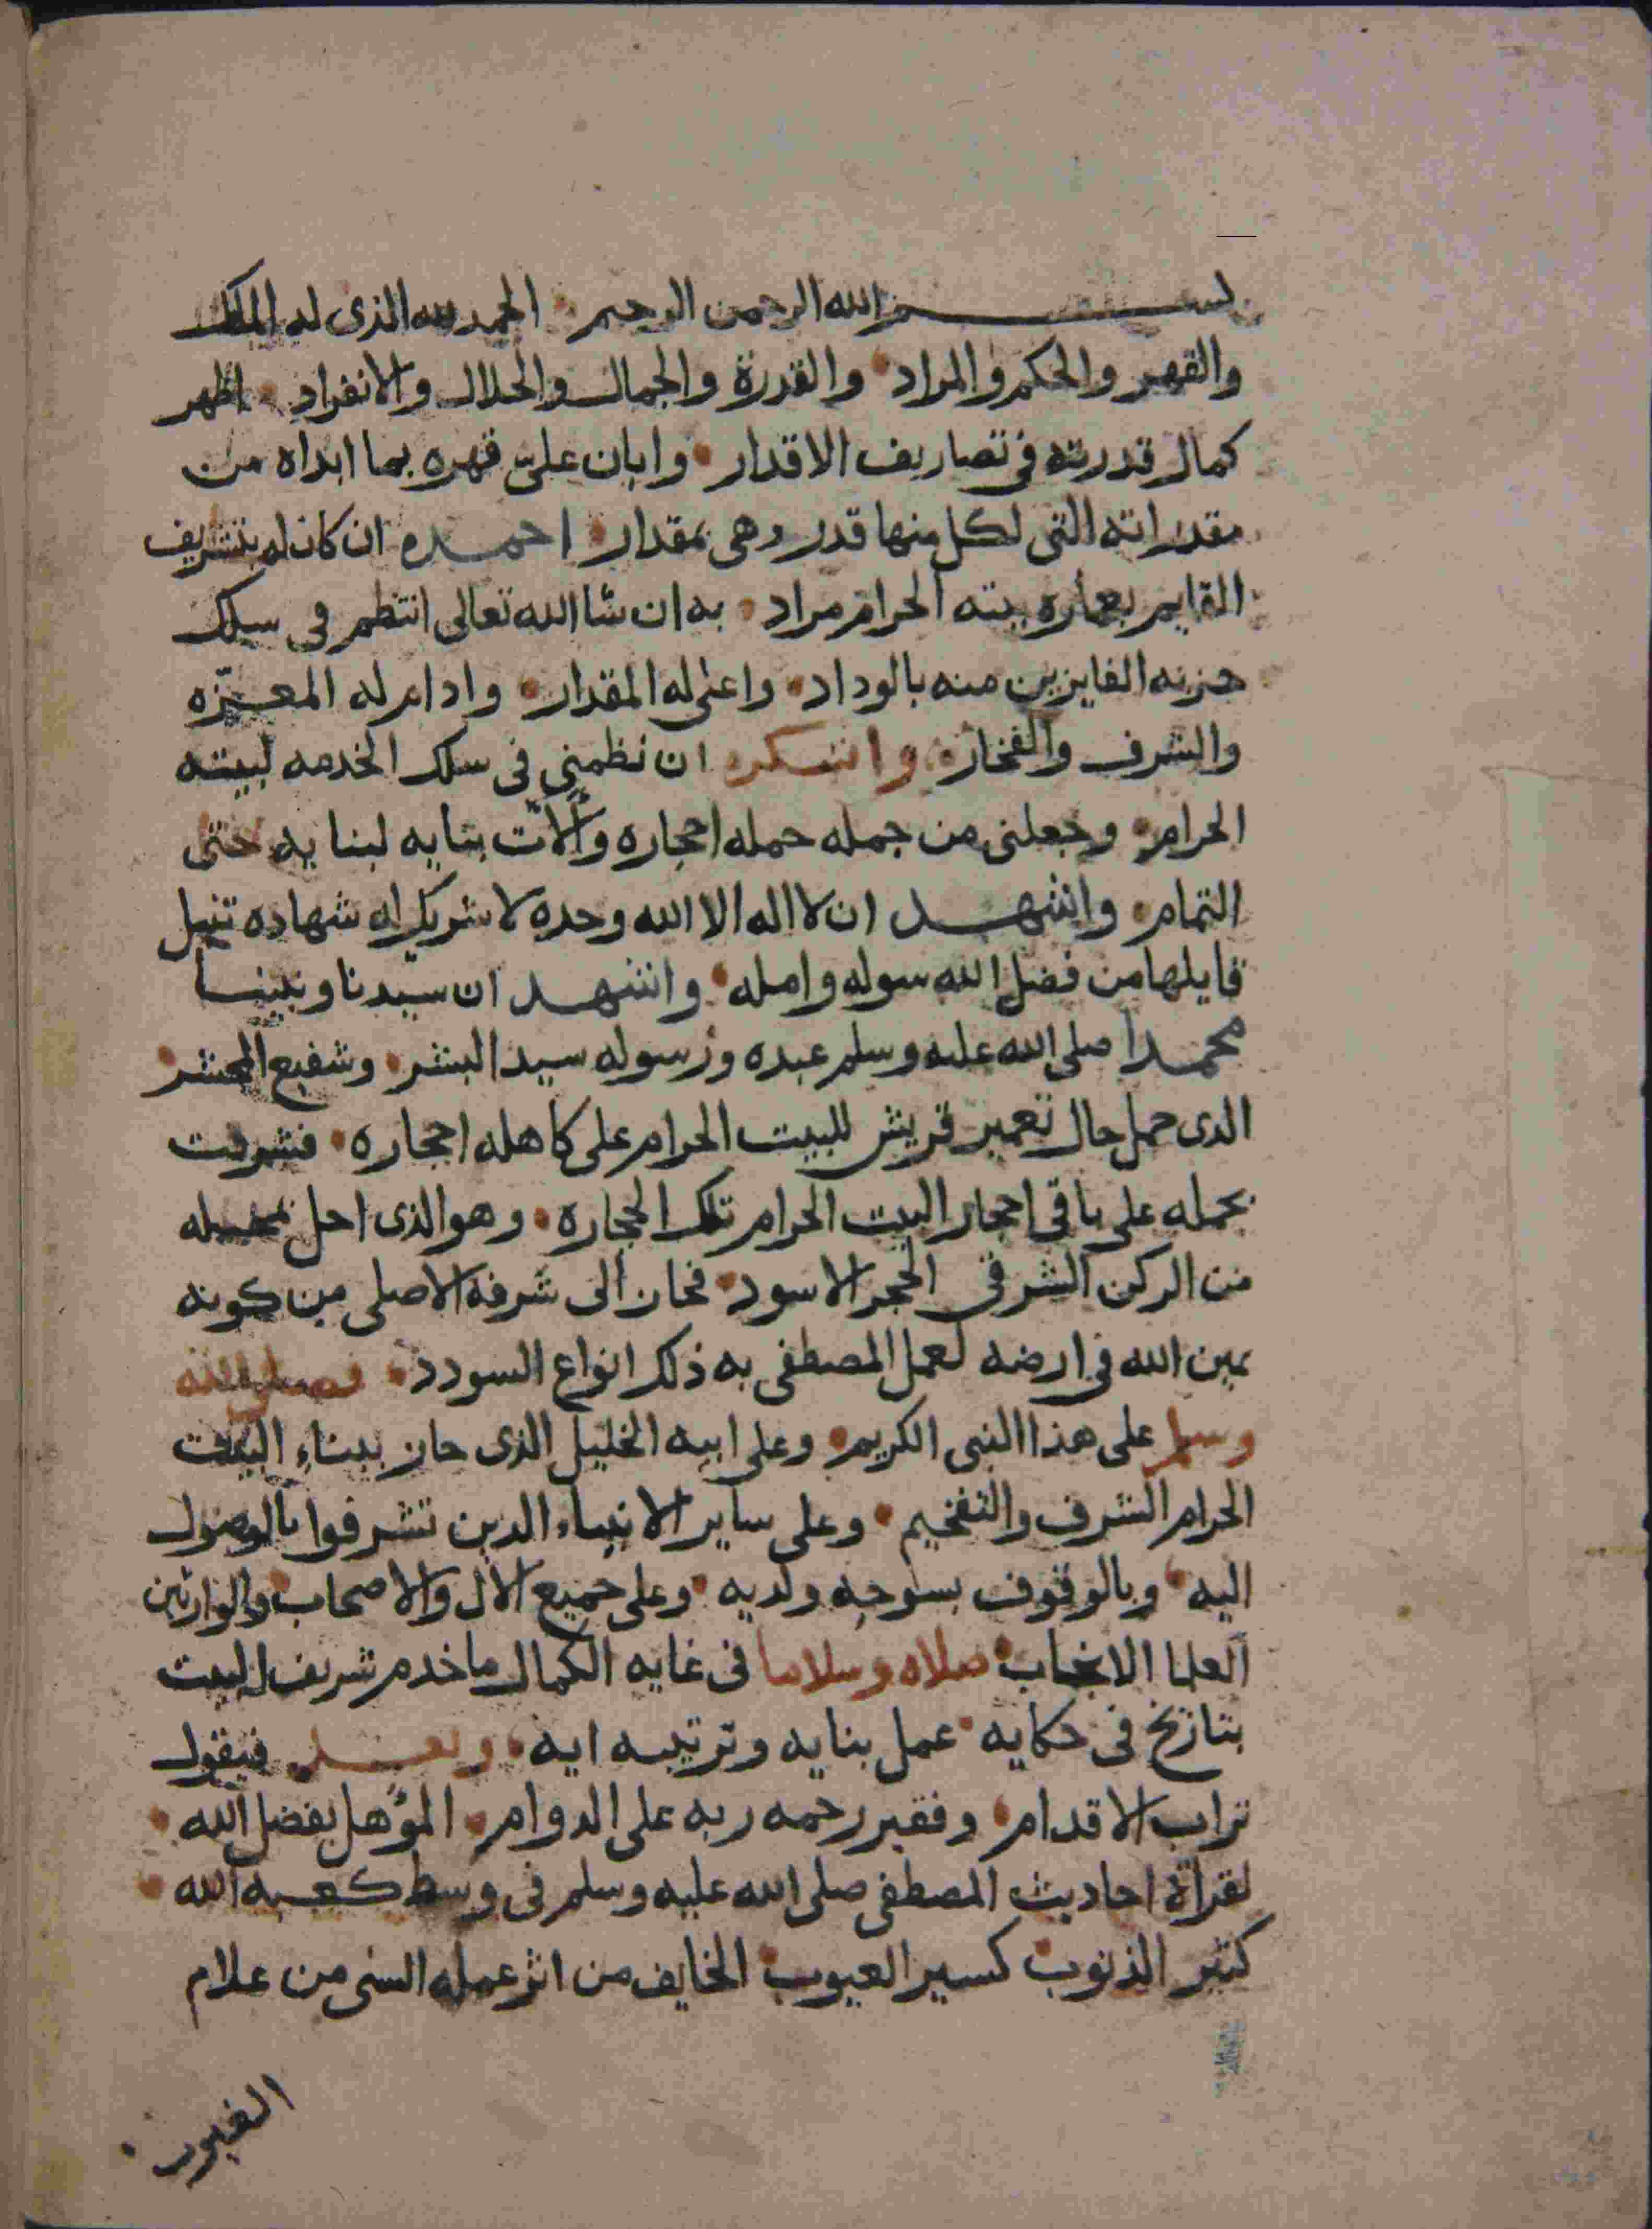 بسم الله الرحمن الرحيم الحمد لله الذى له الملك
والقهر والحكم والمراد والقدرة والجمال والجلال والانفراد اظهر
كمال قدرته فى تصاريف الاقدار وابان علىّ قهره بما ابداه من
مقدراته التى لكل منها قدر وهى بمقدار احمده ان كان له بتشريف
القايم بعماره بيته الحرام مراد به ان شا الله تعالى انتظم فى سلك
حزبه الفايزين منه بالوداد واعلى له المقدار وادام له المعـزّه
والشرف والفخار واشكره ان نظمنى فى سلك الخدمه لبيته
الحرام وجعلنى من جمله حمله احجاره وآلات بنايه لبنايه حتى
التمام واشهد ان لا اله الا الله وحده لا شريك له شهاده تنيل
قايلها من فضل الله سوله وامله واشهد ان سيدنا ونبينا
محمدا صلى الله عليه وسلم عبده ورسوله سيد البشر وشفيع المحشر
الذى حمل حال تعمير قريش للبيت الحرام على كاهله احجاره فشرفت
بحمله على باقى احجار البيت الحرام تلك الحجاره وهو الذى احل بمحله
من الركن الشرقى الحجر الاسود فحاز الى شرفه الاصلى من كونه
يمين الله فى ارضه لعمل المصطفى به ذلك انواع السودد فصلى الله
وسلم على هذا النبى الكريم وعلى ابيه الخليل الذى حاز ببناء البيت
الحرام الشرف والتفخيم وعلى ساير الانبياء الذين تشرفوا بالوصول
اليه وبالوقوف بسوحه ولديه وعلى جميع الآل والاصحاب والوارثين
العلما الانجاب صلاه وسلاما فى غايه الكمال ما خدم شريف البيت
بتاريخ فى حكايه عمل بنايه وترتيبه ايه وبعد فيقول
تراب الاقدام وفقير رحمه ربه على الدوام المؤهل بفضل الله
لقراة احاديث المصطفى صلى الله عليه وسلم فى وسط كعبه الله
كثير الذنوب كسير العيوب الخايف من اثر عمله السى من علام
الغيوب